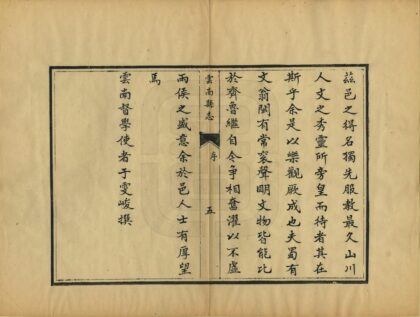 茲邑之得名獨先服教最久山川
人文之秀靈所旁望而待者其在
斯乎余是以樂觀厥成也夫蜀有
文翁閩有常袞聲明文物皆能比
雲南縣志
序
五
於齊魯繼自今爭相奮濯以不虛
兩侯之盛意余於邑人士有厚望
焉
雲南督學使者于雯峻撰